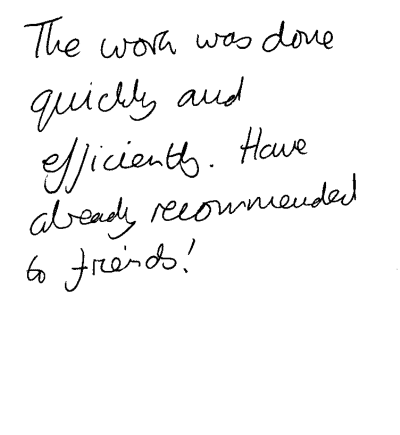 The work was done
quickly and
efficiently. Have
already recommended
to friends!